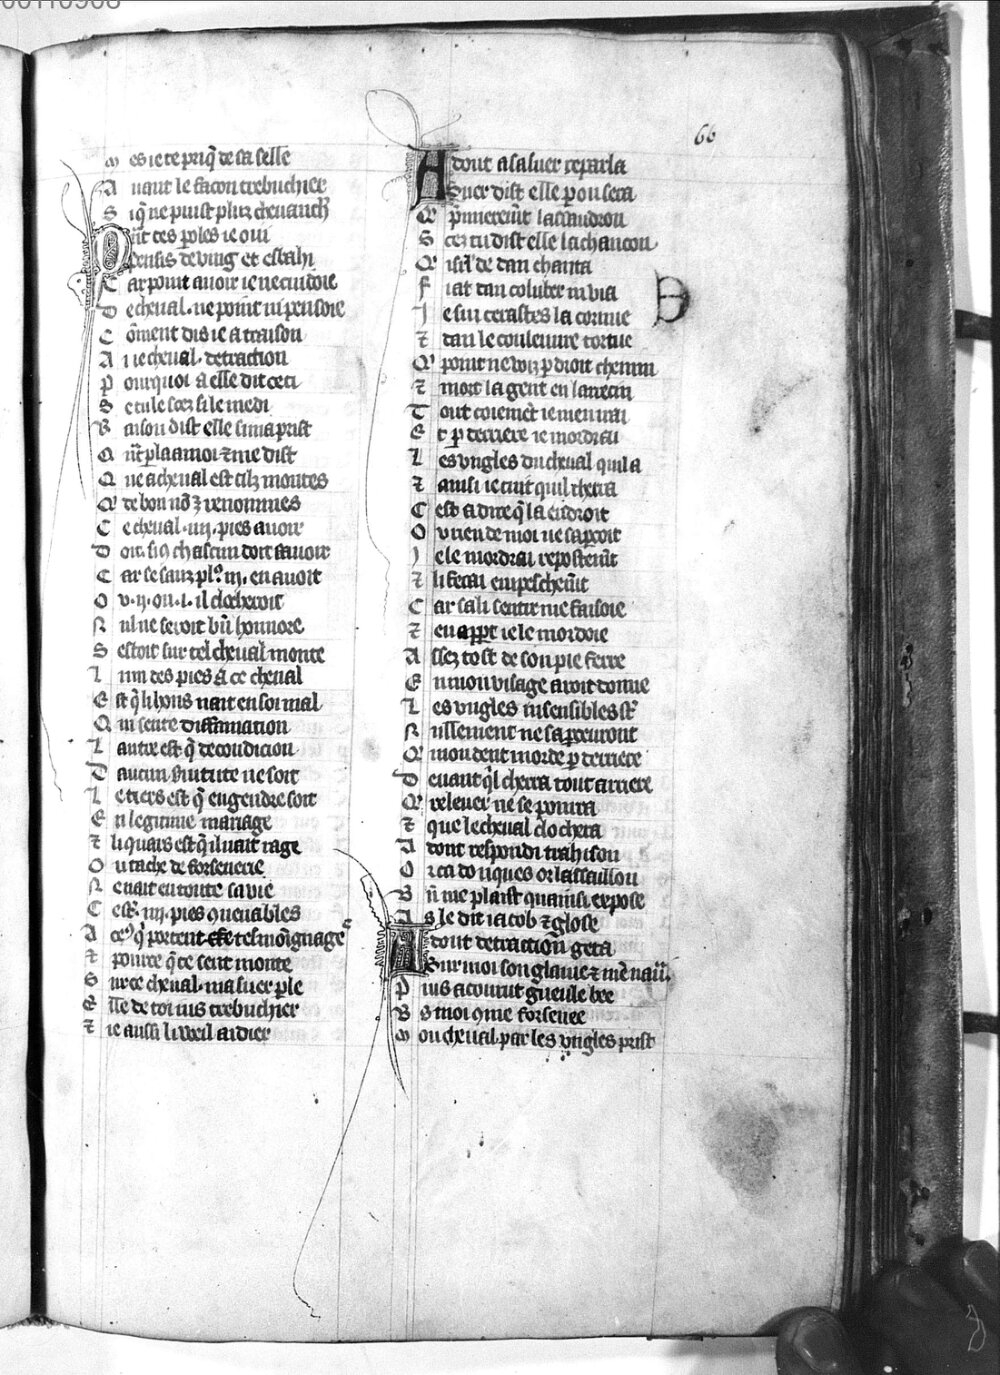 66
M es ie te priq̃ de sa selle
A uant le facon trebuchier
S i q̃ ne puist plus cheuauch
Q̃nt ces ꝑoles ie oui
Pensis deuing et esbahi
C ar point auoir ie ne cuidoie
D e cheual . ne point ni pensoie
C õment dis ie a traison
A i ie cheual . detraction
P ourquoi a elle dit ceci
S e tu le scez si le me di
R aison dist elle si ma prist
Q̃nt ꝑla a moi ⁊ me dist
Q ue a cheual est cilz montes
Q' de bon nõ ⁊ renommes
C e cheual . iiij . pies auoir
D oit . si 9 chascun doit sauoir
C ar se sanz plꝰ . iij . en auoit
O u . ij . ou . i . il clocheroit
N ul ne seroit bñ honnore
S estoit sur tel cheual monte
L un des pies a ce cheual
E st q̃ li hons nait en soi mal
Q ui sente diffamation
L autre est q̃ de condicion
D aucun seruitute ne soit
L e tiers est q̃ engendre soit
E n legitime mariage
⁊ li quars est q̃ il nait rage
O u tache de forsenerie
N e nait en toute sa vie
C e st . iiij . pies 9uenables
A ceꝰ q̃ portent tesmoignage
⁊ pource q̃ ce sent monte
S ur ce cheual . ma suer ꝑle
E lle de toi ius trebuchier
⁊ ie aussi li weil aidier
A dont a sa suer reparla
Suer dist elle pou sera
Q' p̃mierem̃t
S cez tu dist elle la chancon
Q' isr̃l de dan chanta
F iat dan coluber in via
I e sui cerastes la cornue
⁊ dan le couleuure tortue
Q' point ne vois ꝑ droit chemin
⁊ mort la gent en larrecin
T out coiemẽt ie men irai
E t ꝑ derriere ie mordrai
L es vngles du cheual quil a
⁊ ainsi ie cuit quil cherra
C est a dire q̃ la endroit
O u rien de moi ne sapcoit
I e le mordrai repostem̃t
⁊ li ferai empeschem̃t
C ar sali sentir me faisoie
⁊ en appt ie le mordoie
A ssez tost de son pie ferre
E n mon visage aroit donne
L es vngles insensibles st̃
N ullement ne sapceuront
Q' mon dent morde ꝑ derriere
D euant q̃l cherra tout arriere
Q' releuer ne se pourra
⁊ que le cheual clochera
A dont respondi trahison
O r ca donques or lassaillon
B ñ me plaist quainsi expose
A s le dit iacob ⁊ glose
A dont detraction geta
Sur moi son glaiue ⁊ me naũ.
P uis acourut gueule bee
V s moi 9me forsenee
M on cheual par les vngles prist